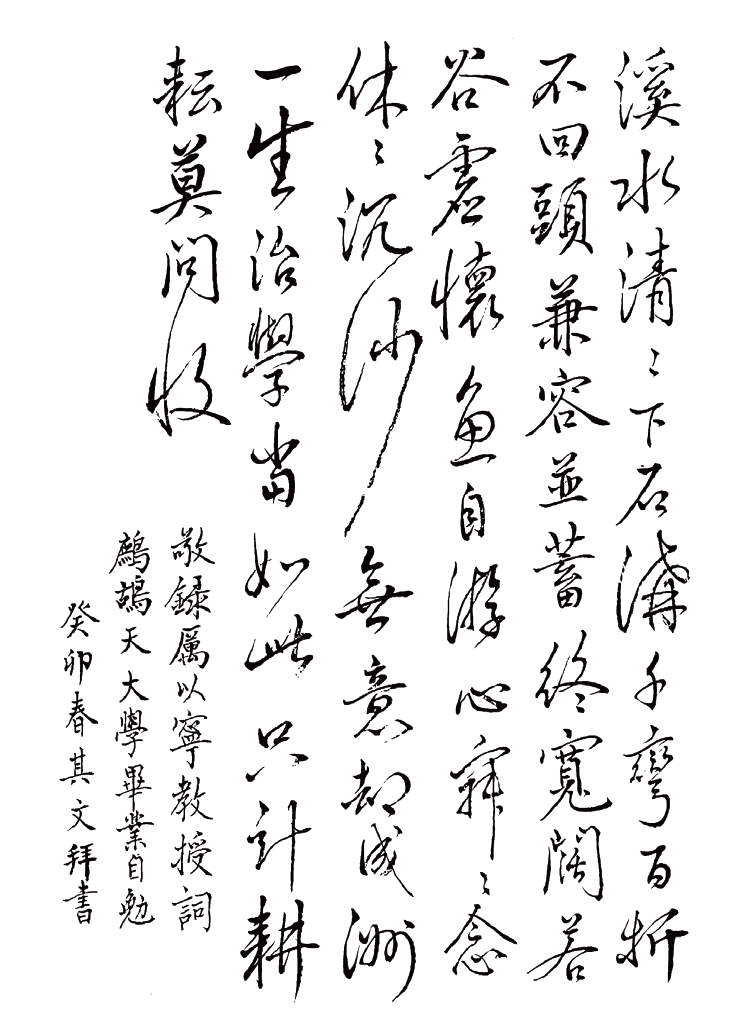 溪水清〻下石溝千彎百折
不回頭兼容並蓄終寬闊若
谷虛懷魚自游心寂〻念
休〻沉沙無意却成洲
一生治學當如此只計耕
耘莫問收
敬録厲以寧教授詞
鷓鴣天大學畢業自勉
癸卯春其文拜書